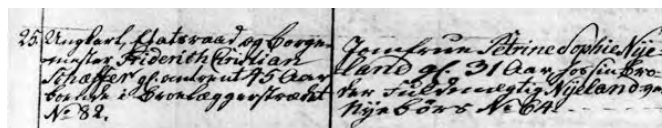 25. Ungkarl, Etatsraad og Borge-
mester Friderich Christian
Schäffer gl. omtrent 45 Aar
boende i Brolæggerstrædet
No 82.
Jomfrue Petrine Sophie Nye-
land gl. 31 Aar hos sin Bro-
der Fuldmægtig Nyeland
Nyebörs No 64.